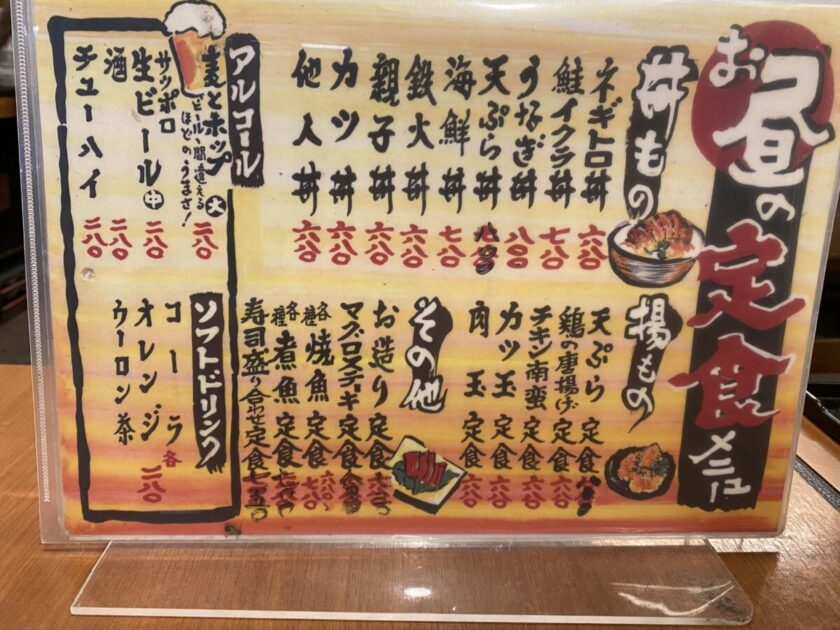 お昼の定食メニュー
丼もの
ネギトロ丼 六八〇
鮭イクラ丼 七八〇
うなぎ丼 八〇〇
天ぷら丼
海鮮丼 七八〇
鉄火丼 六八〇
親子丼 六八〇
カツ丼 六八〇
他人丼 六八〇
揚もの
天ぷら定食
鶏の唐揚げ定食 六八〇
チキン南蛮定食 六八〇
カツ玉定食 六八〇
肉玉定食 六八〇
その他
お造り定食
マグロステーキ定食
各種焼魚定食 六八〇~七八〇
各種煮魚定食
寿司盛り合わせ定食
アルコール
麦とホップ 大 二八〇
ビールと間違える
ほどのうまさ!
サッポロ
生ビール 中 二八〇
酒 二八〇
チューハイ 二八〇
ソフトドリンク
コーラ
オレンジ
ウーロン茶
各二八〇